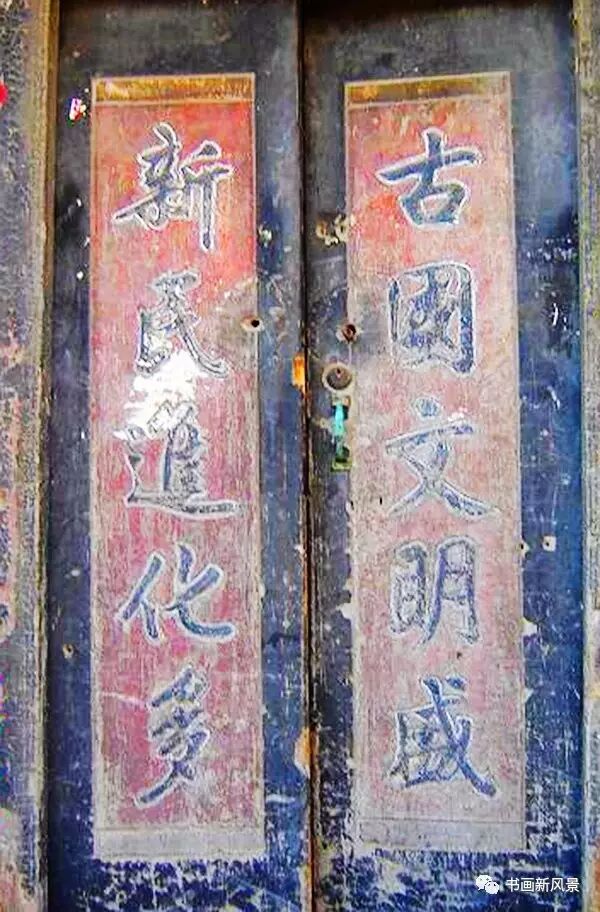 古國文明盛
新民進化多
书画新风景